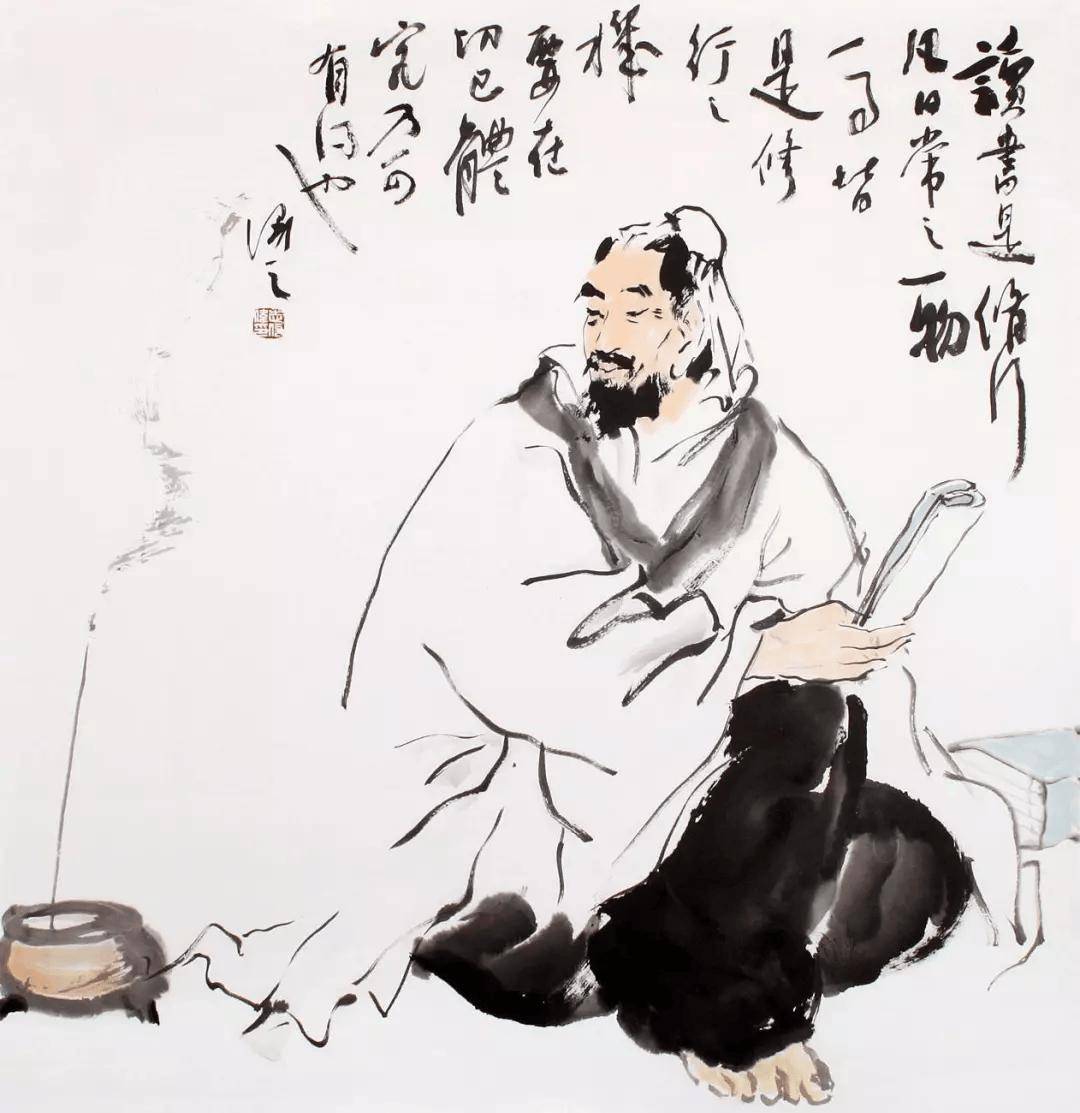 讀書是脩行
凡日常之一物
一事皆
是修
行之
機
要在
切己體
究乃可
有得也
之